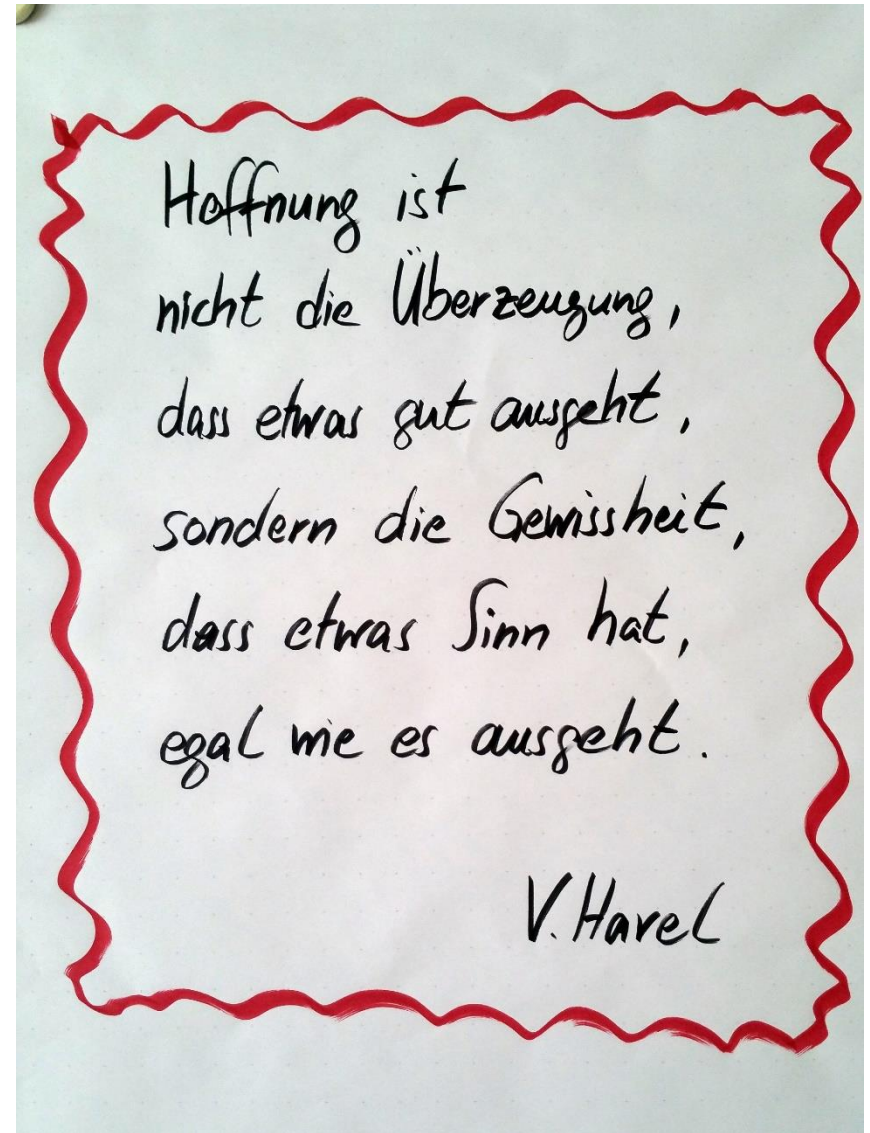 Hoffnung ist
nicht die Überzeugung,
dass etwas gut ausgeht,
sondern die Gewissheit,
dass etwas Sinn hat,
egal wie es ausgeht.
V. Havel